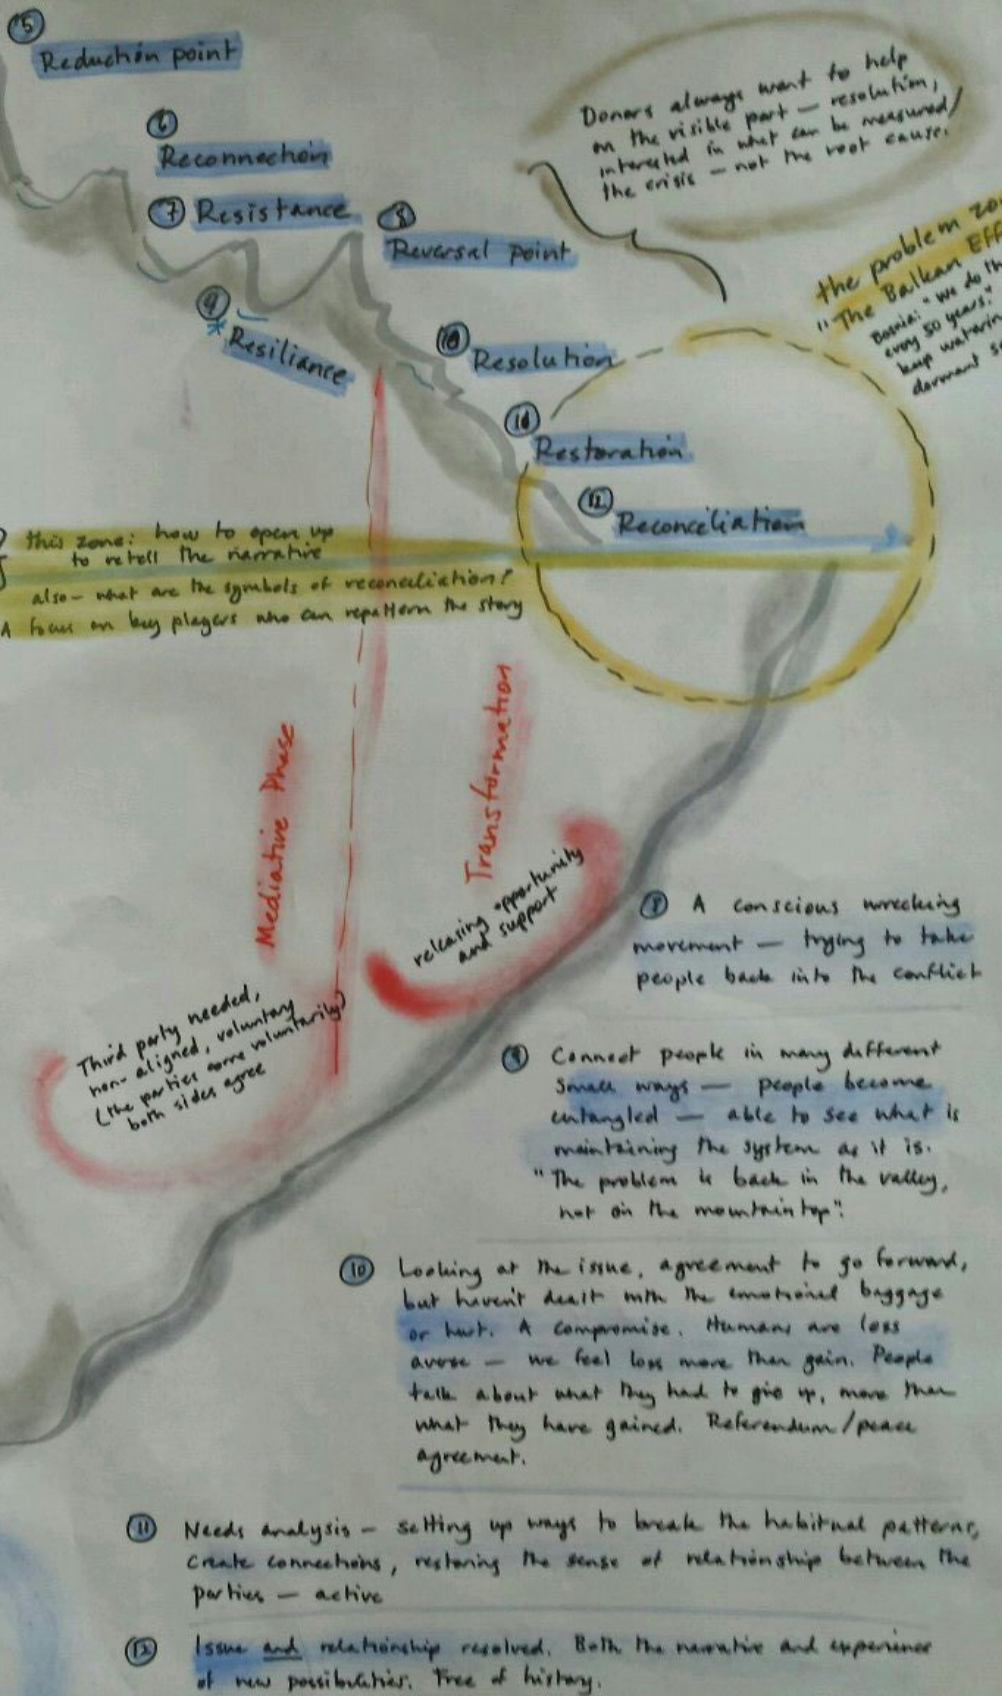 5
Reduction point
6
Reconnection
7 Resistance
8
Reversal point
9
* Resiliance
10
Resolution
11
Restoration
12
Reconciliation
Donors always want to help
on the visible part — resolution,
interested in what can be measured/
the crisis — not the root cause.
the problem zo
"The Balkan Eff
Bosnia: "we do th
every 50 years."
keep waterin
dormant se
? this zone: how to open up
to retell the narrative
also — what are the symbols of reconciliation?
A focus on key players who can repattern the story
Mediative Phase
Transformation
releasing opportunity
and support
Third party needed,
non-aligned, voluntary
(the parties come voluntarily)
both sides agree
8 A conscious wrecking
movement — trying to take
people back into the conflict
9 Connect people in many different
small ways — people become
entangled — able to see what is
maintaining the system as it is.
"The problem is back in the valley,
not on the mountain top".
10 Looking at the issue, agreement to go forward,
but haven't dealt with the emotional baggage
or hurt. A compromise. Humans are loss
averse — we feel loss more than gain. People
talk about what they had to give up, more than
what they have gained. Referendum/peace
agreement.
11 Needs analysis — setting up ways to break the habitual patterns,
create connections, restoring the sense of relationship between the
parties — active
12 Issue and relationship resolved. Both the narrative and experience
of new possibilities. Free of history.